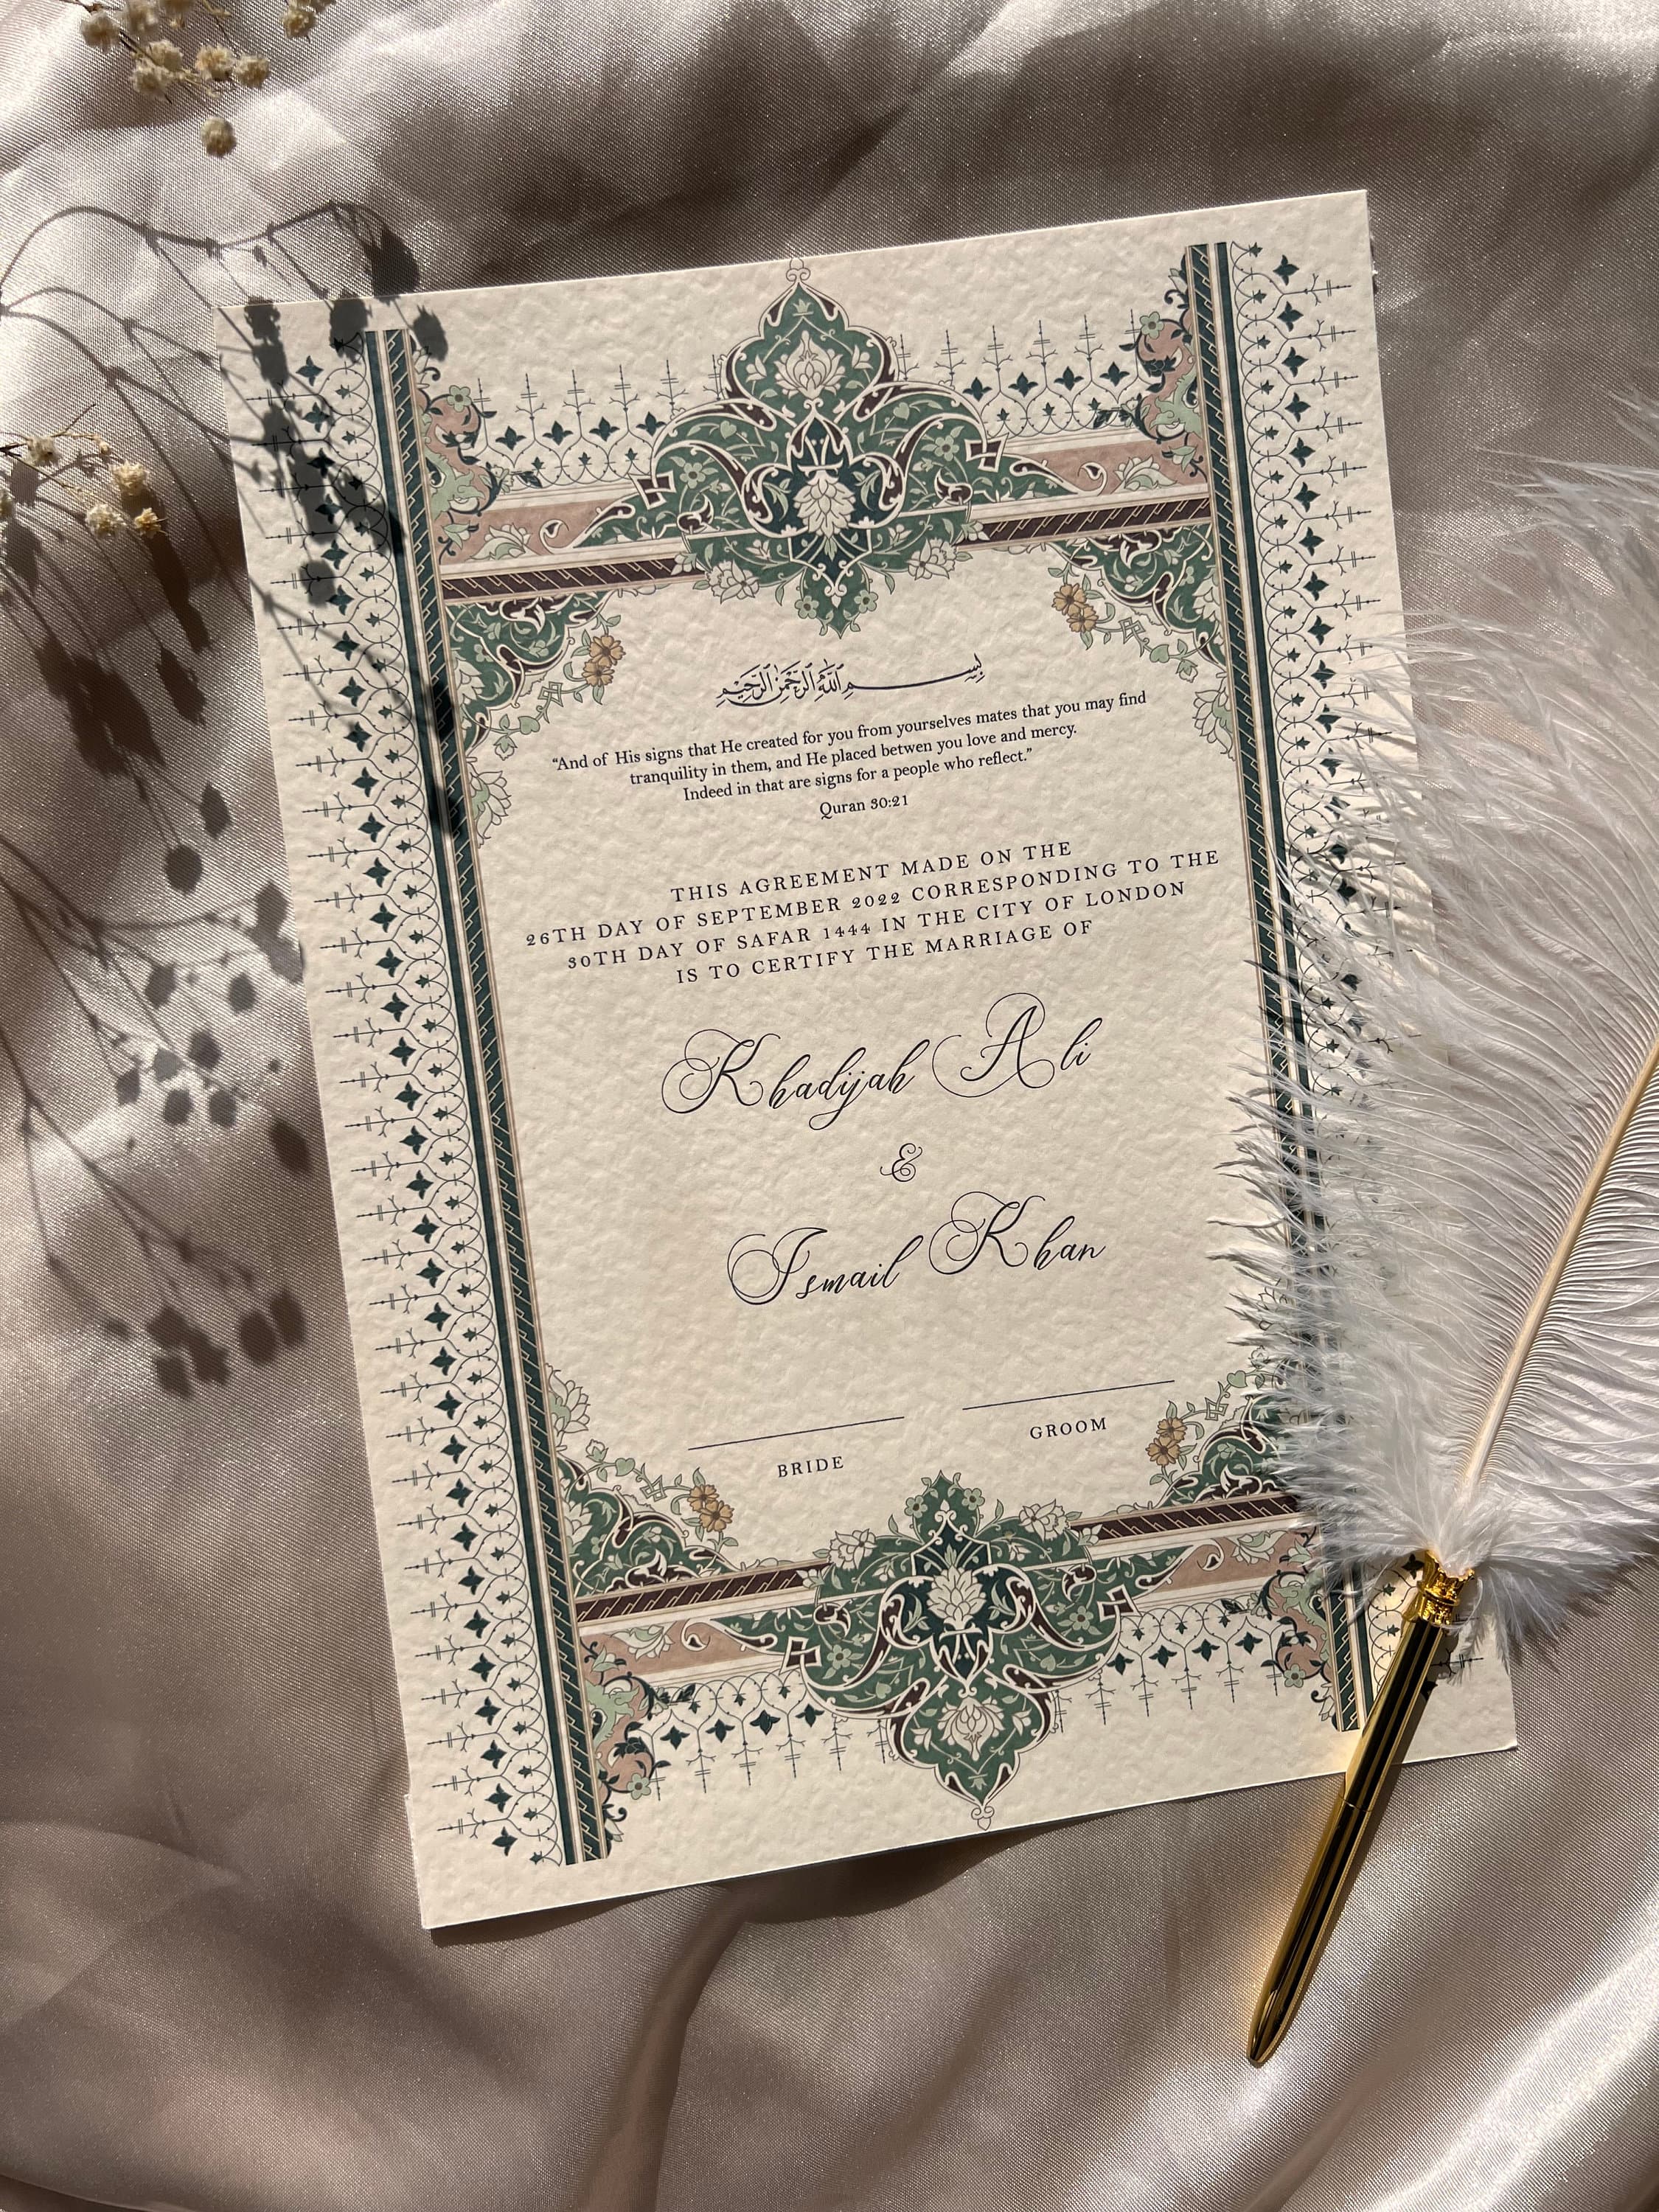 بِسْمِ ٱللَّٰهِ ٱلرَّحْمَٰنِ ٱلرَّحِيمِ
“And of His signs that He created for you from yourselves mates that you may find
tranquility in them, and He placed betwen you love and mercy.
Indeed in that are signs for a people who reflect.”
Quran 30:21
THIS AGREEMENT MADE ON THE
26TH DAY OF SEPTEMBER 2022 CORRESPONDING TO THE
30TH DAY OF SAFAR 1444 IN THE CITY OF LONDON
IS TO CERTIFY THE MARRIAGE OF
Khadijah Ali
&
Ismail Khan
BRIDE
GROOM